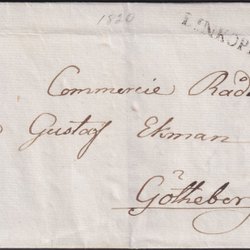 1820
LINKÖP
Commercie Råd
Gustaf Ekman
i
Götheber